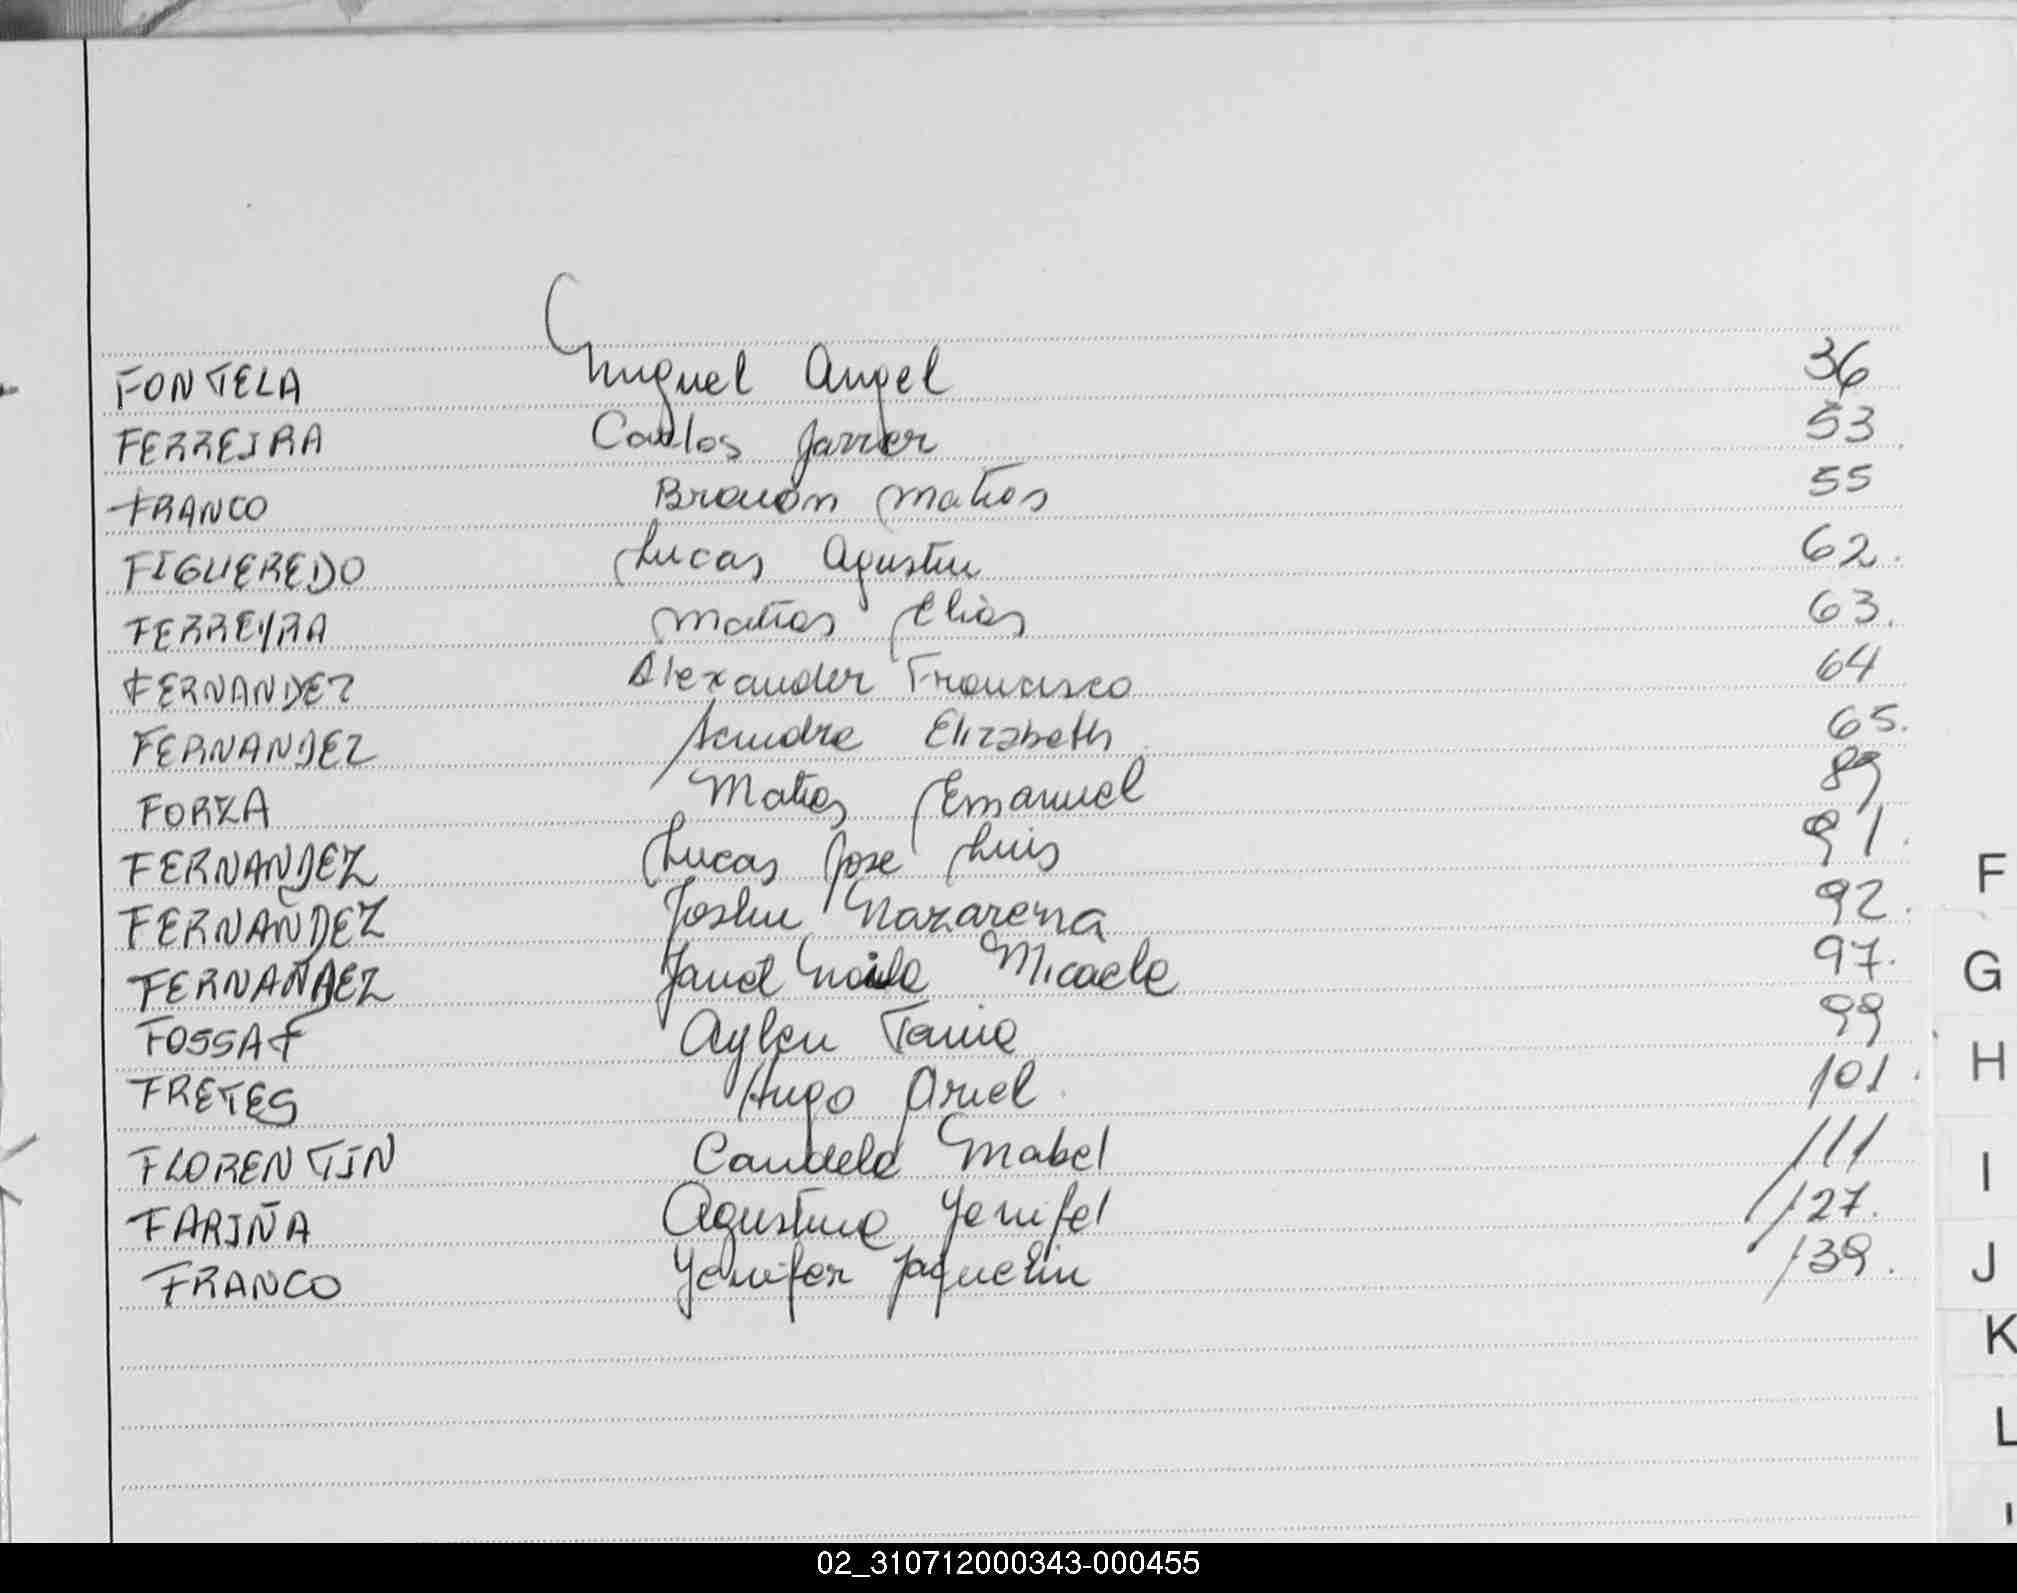 FONTELA Miguel Angel 36
FERREIRA Carlos Javier 53
FRANCO Braian Matias 55
FIGUEREDO Lucas Agustin 62.
FERREYRA Matias Elias 63.
FERNANDEZ Alexander Francisco 64
FERNANDEZ Sandra Elizabeth 65.
FORZA Matias Emanuel 89
FERNANDEZ Lucas Jose Luis 91.
FERNANDEZ Nazarena 92.
FERNANDEZ Janet Micaela 97.
FOSSAT Aylen Tania 99
FRETES Hugo Ariel 101.
FLORENTIN Candela Mabel 111
FARIÑA Agustina Yenifel 127.
FRANCO Yenifer Jaquelin 139.
F
G
H
I
J
K
L
02_310712000343-000455